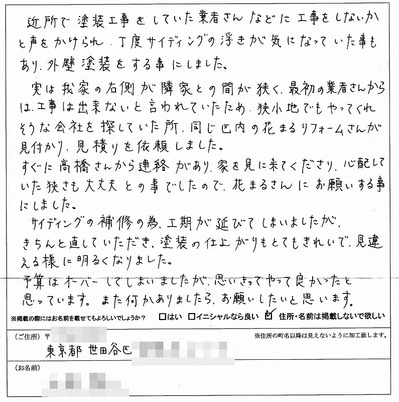 近所で塗装工事をしていた業者さんなどに工事をしないか
と声をかけられ、丁度サイディングの浮きが気になっていた事も
あり、外壁塗装をする事にしました。
実は我家の右側が隣家との間が狭く、最初の業者さんから
は、工事は出来ないと言われていたため、狭小地でもやってくれ
そうな会社を探していた所、同じ区内の花まるリフォームさんが
見付かり、見積りを依頼しました。
すぐに高橋さんから連絡があり、家を見に来てくださり、心配して
いた狭さも大丈夫との事でしたので、花まるさんにお願いする事
にしました。
サイディングの補修の為、工期が延びてしまいましたが、
きちんと直していただき、塗装の仕上がりもとてもきれいで、見違
える様に明るくなりました。
予算はオーバーしてしまいましたが、思いきってやって良かったと
思っています。また何かありましたら、お願いしたいと思います。
※掲載の際にはお名前を載せてもよろしいでしょうか? □はい □イニシャルなら良い ☑住所・名前は掲載しないで欲しい
(ご住所) 〒 ※住所の町名以降は見えないように加工致します。
東京都 世田谷区
(お名前)